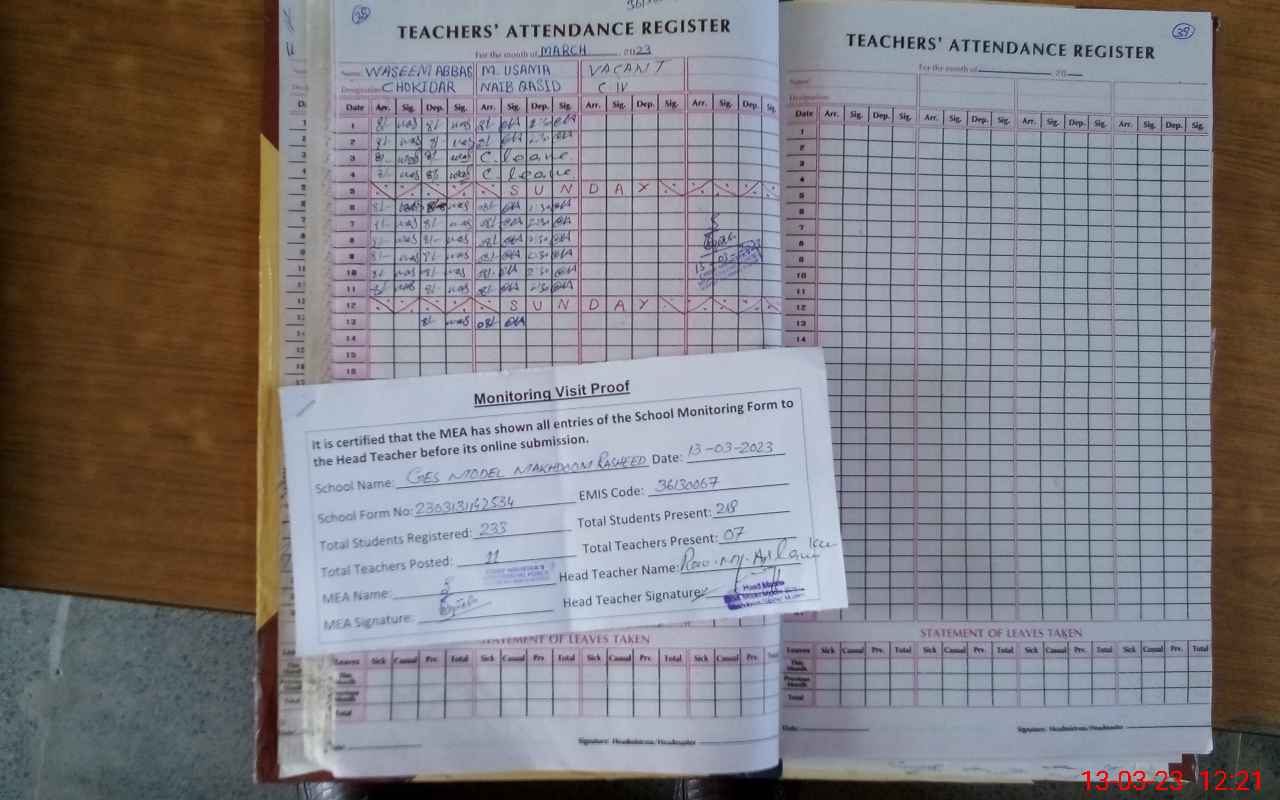 38
TEACHERS' ATTENDANCE REGISTER
For the month of MARCH 2023
Name: WASEEM ABBAS M. USAMA VACANT
Designation CHOKIDAR NAIB QASID C IV
Date Arr. Sig. Dep. Sig. Arr. Sig. Dep. Sig. Arr. Sig. Dep. Sig. Arr. Sig. Dep. Sig.
1 8/- was 8/- was 8/- 2:30
2 8/- was 8/- was 8/- 2:30
3 8/- was 8/- was C. leave
4 8/- was 8/- was C. leave
5 SUNDAY
6 8/- was 08/- 2:30
7 8/- was 8/- was 08/- 2:30
8 8/- was 8/- was 08/- 2:30
9 8/- was 8/- was 08/- 2:30
10 8/- was 8/- was 8/- 2:30
11 8/- was 8/- was 8/- 2:30
12 SUNDAY
13 8/- was 08/-
14
15
16
13-03-2023
Monitoring Visit Proof
It is certified that the MEA has shown all entries of the School Monitoring Form to
the Head Teacher before its online submission.
School Name: GES MODEL MAKHDOOM RASHEED Date: 13-03-2023
School Form No: 2303131142534 EMIS Code: 36130067
Total Students Registered: 233 Total Students Present: 218
Total Teachers Posted: 11 Total Teachers Present: 07
MEA Name: Head Teacher Name:
MEA Signature: Head Teacher Signature:
STATEMENT OF LEAVES TAKEN
Leaves Sick Casual Prv. Total Sick Casual Prv. Total Sick Casual Prv. Total Sick Casual Prv. Total
This Month
Previous Month
Total
Signature: Headmistress/Headmaster
39
TEACHERS' ATTENDANCE REGISTER
For the month of 20
Name:
Designation:
Date Arr. Sig. Dep. Sig. Arr. Sig. Dep. Sig. Arr. Sig. Dep. Sig. Arr. Sig. Dep. Sig.
1
2
3
4
5
6
7
8
9
10
11
12
13
14
STATEMENT OF LEAVES TAKEN
Leaves Sick Casual Prv. Total Sick Casual Prv. Total Sick Casual Prv. Total Sick Casual Prv. Total
This Month
Previous Month
Total
Date: Signature: Headmistress/Headmaster
13-03-23 12:21